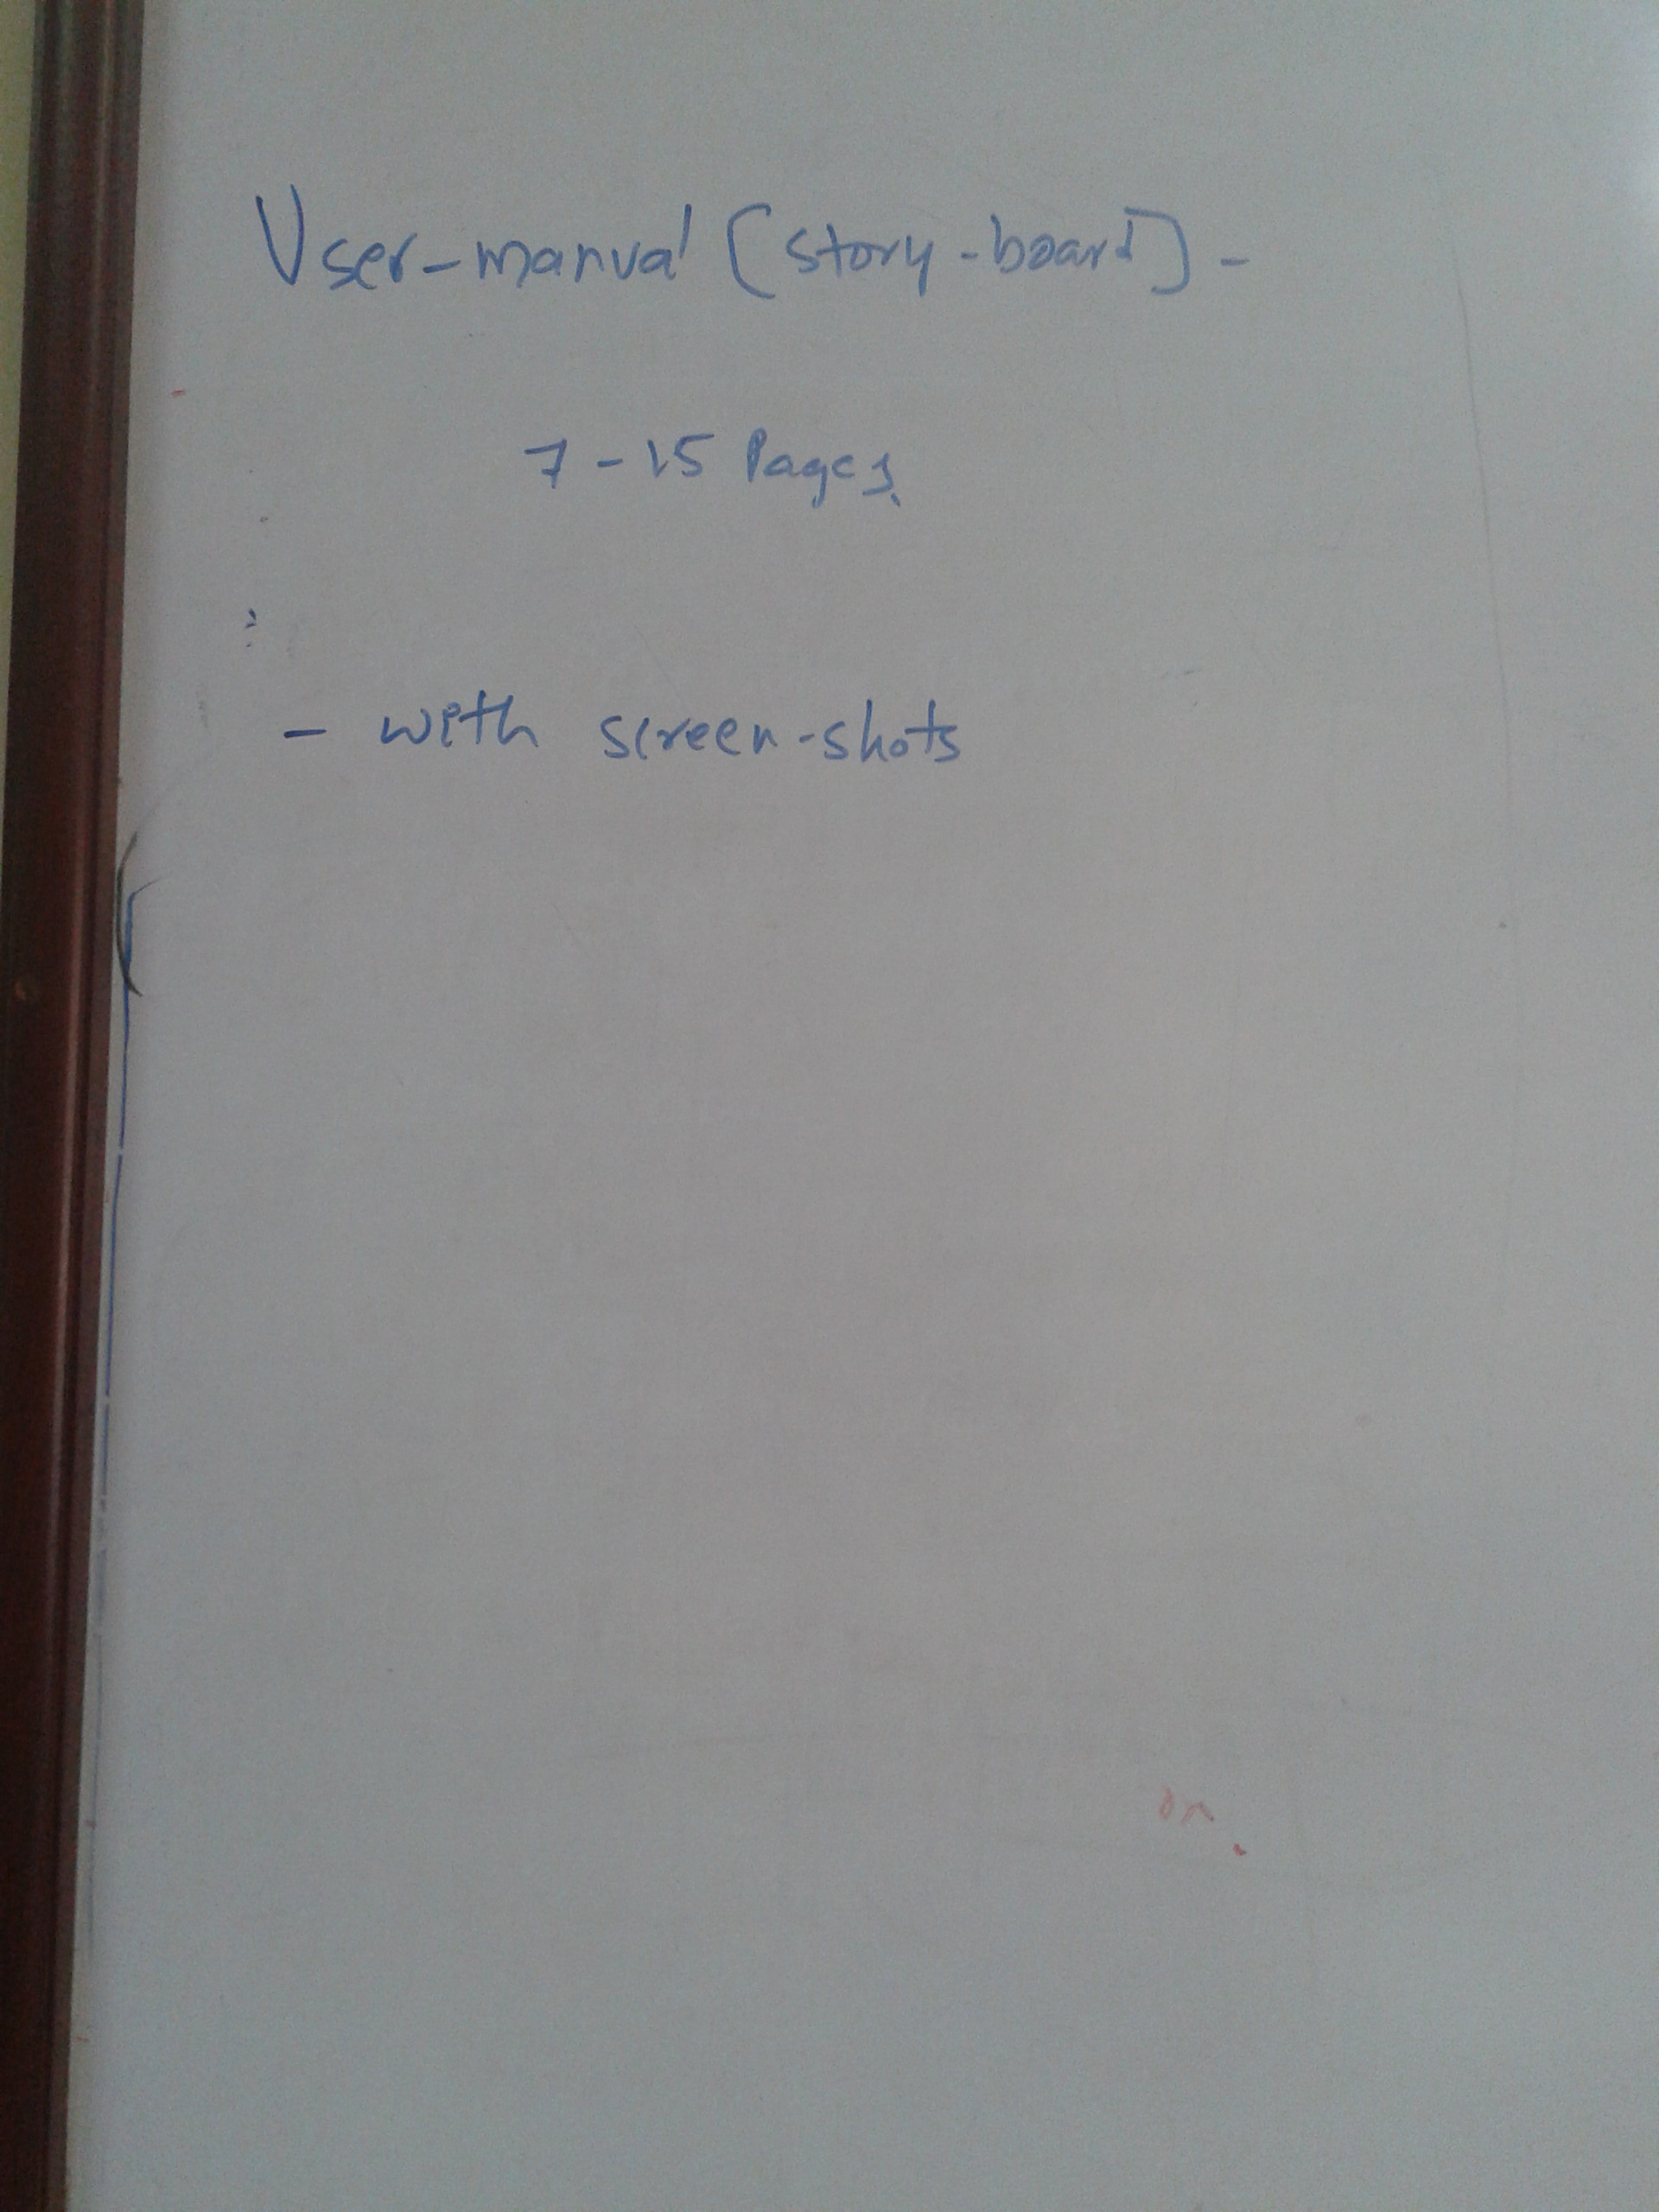 User-manual [story-board] -
7 - 15 Pages.
- with screen-shots